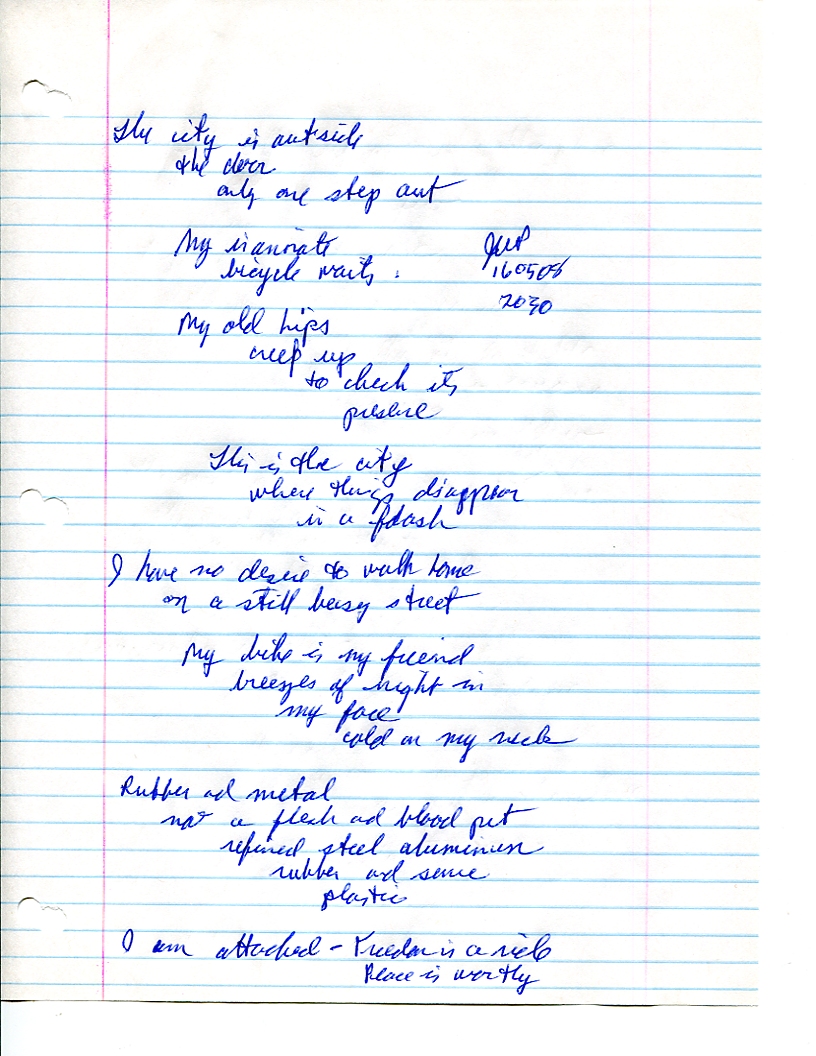 The city is outside
the door
only one step out
My inanimate
bicycle waits.
160508
2030
My old hips
creep up
to check its
presence
This is the city
where things disappear
in a flash
I have no desire to walk home
on a still busy street
My bike is my friend
breezes of night in
my face
cold on my neck
Rubber and metal
not a flesh and blood pet
refined steel aluminium
rubber and some
plastic
I am attached - Freedom is a ride
Peace is worthy